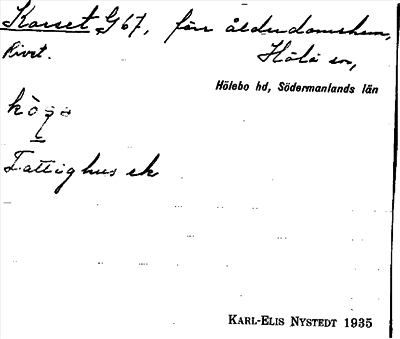 Korset G 67, förr ålderdomshem,
Rivet. Hölö sn,
Hölebo hd, Södermanlands län
Fattighus ek
KARL-ELIS NYSTEDT 1935